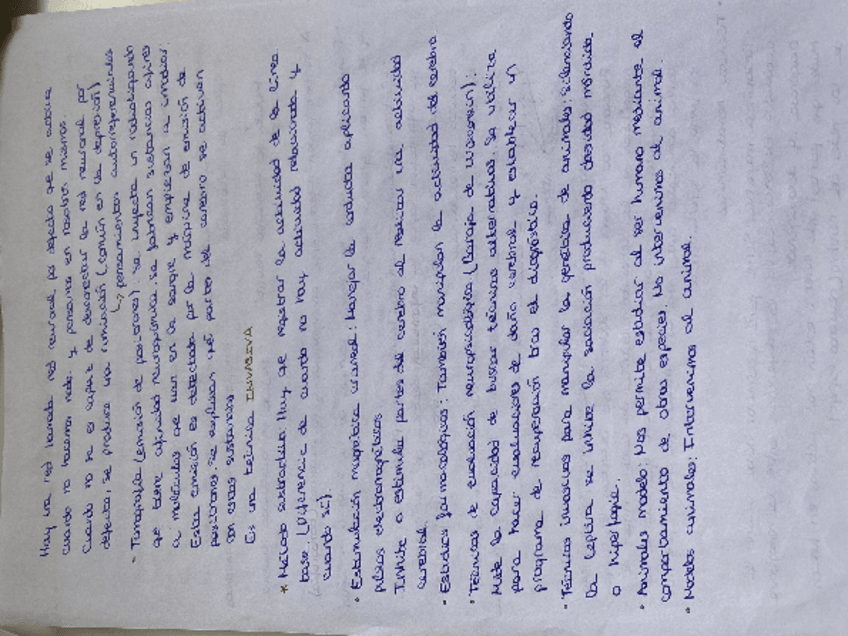 Hay una red llamada red neuronal por defecto que se activa
cuando no hacemos nada y pensamos en nosotros mismos.
Cuando no se es capaz de desconectar la red neuronal por
defecto, se produce una rumiación (común en la depresión)
↳ pensamientos autorreferenciales
· Tomografía (emisión de positrones): se inyecta un radioligando
que tiene afinidad neuroquímica. Se fabrican sustancias afines
a moléculas que van en la sangre y empiezan a irradiar.
Esta emisión es detectada por la máquina de emisión de
positrones. Se explican qué partes del cerebro se activan
con estas sustancias
Es una técnica INVASIVA
* Método sustractivo: Hay que registrar la actividad de la línea
base (Diferencia de cuando no hay actividad relacionada y
cuando sí).
· Estimulación magnética craneal: Manejar la conducta aplicando
pulsos electromagnéticos
Inhibe o estimula partes del cerebro al realizar una actividad
cerebral.
· Estudios farmacológicos: También manipulan la actividad del cerebro
· Técnicas de evaluación neuropsicológica (Baraja de Wisconsin):
Mide la capacidad de buscar técnicas alternativas. Se utiliza
para hacer evaluaciones de daño cerebral y establecer un
programa de recuperación tras el diagnóstico.
· Técnicas invasivas para manipular la genética de animales: Silenciando
la leptina se inhibe la saciación produciendo obesidad mórbida
o hiperfagia.
· Animales modelo: Nos permite estudiar al ser humano mediante el
comportamiento de otras especies. No intervenimos al animal.
· Modelos animales: Intervenimos al animal.